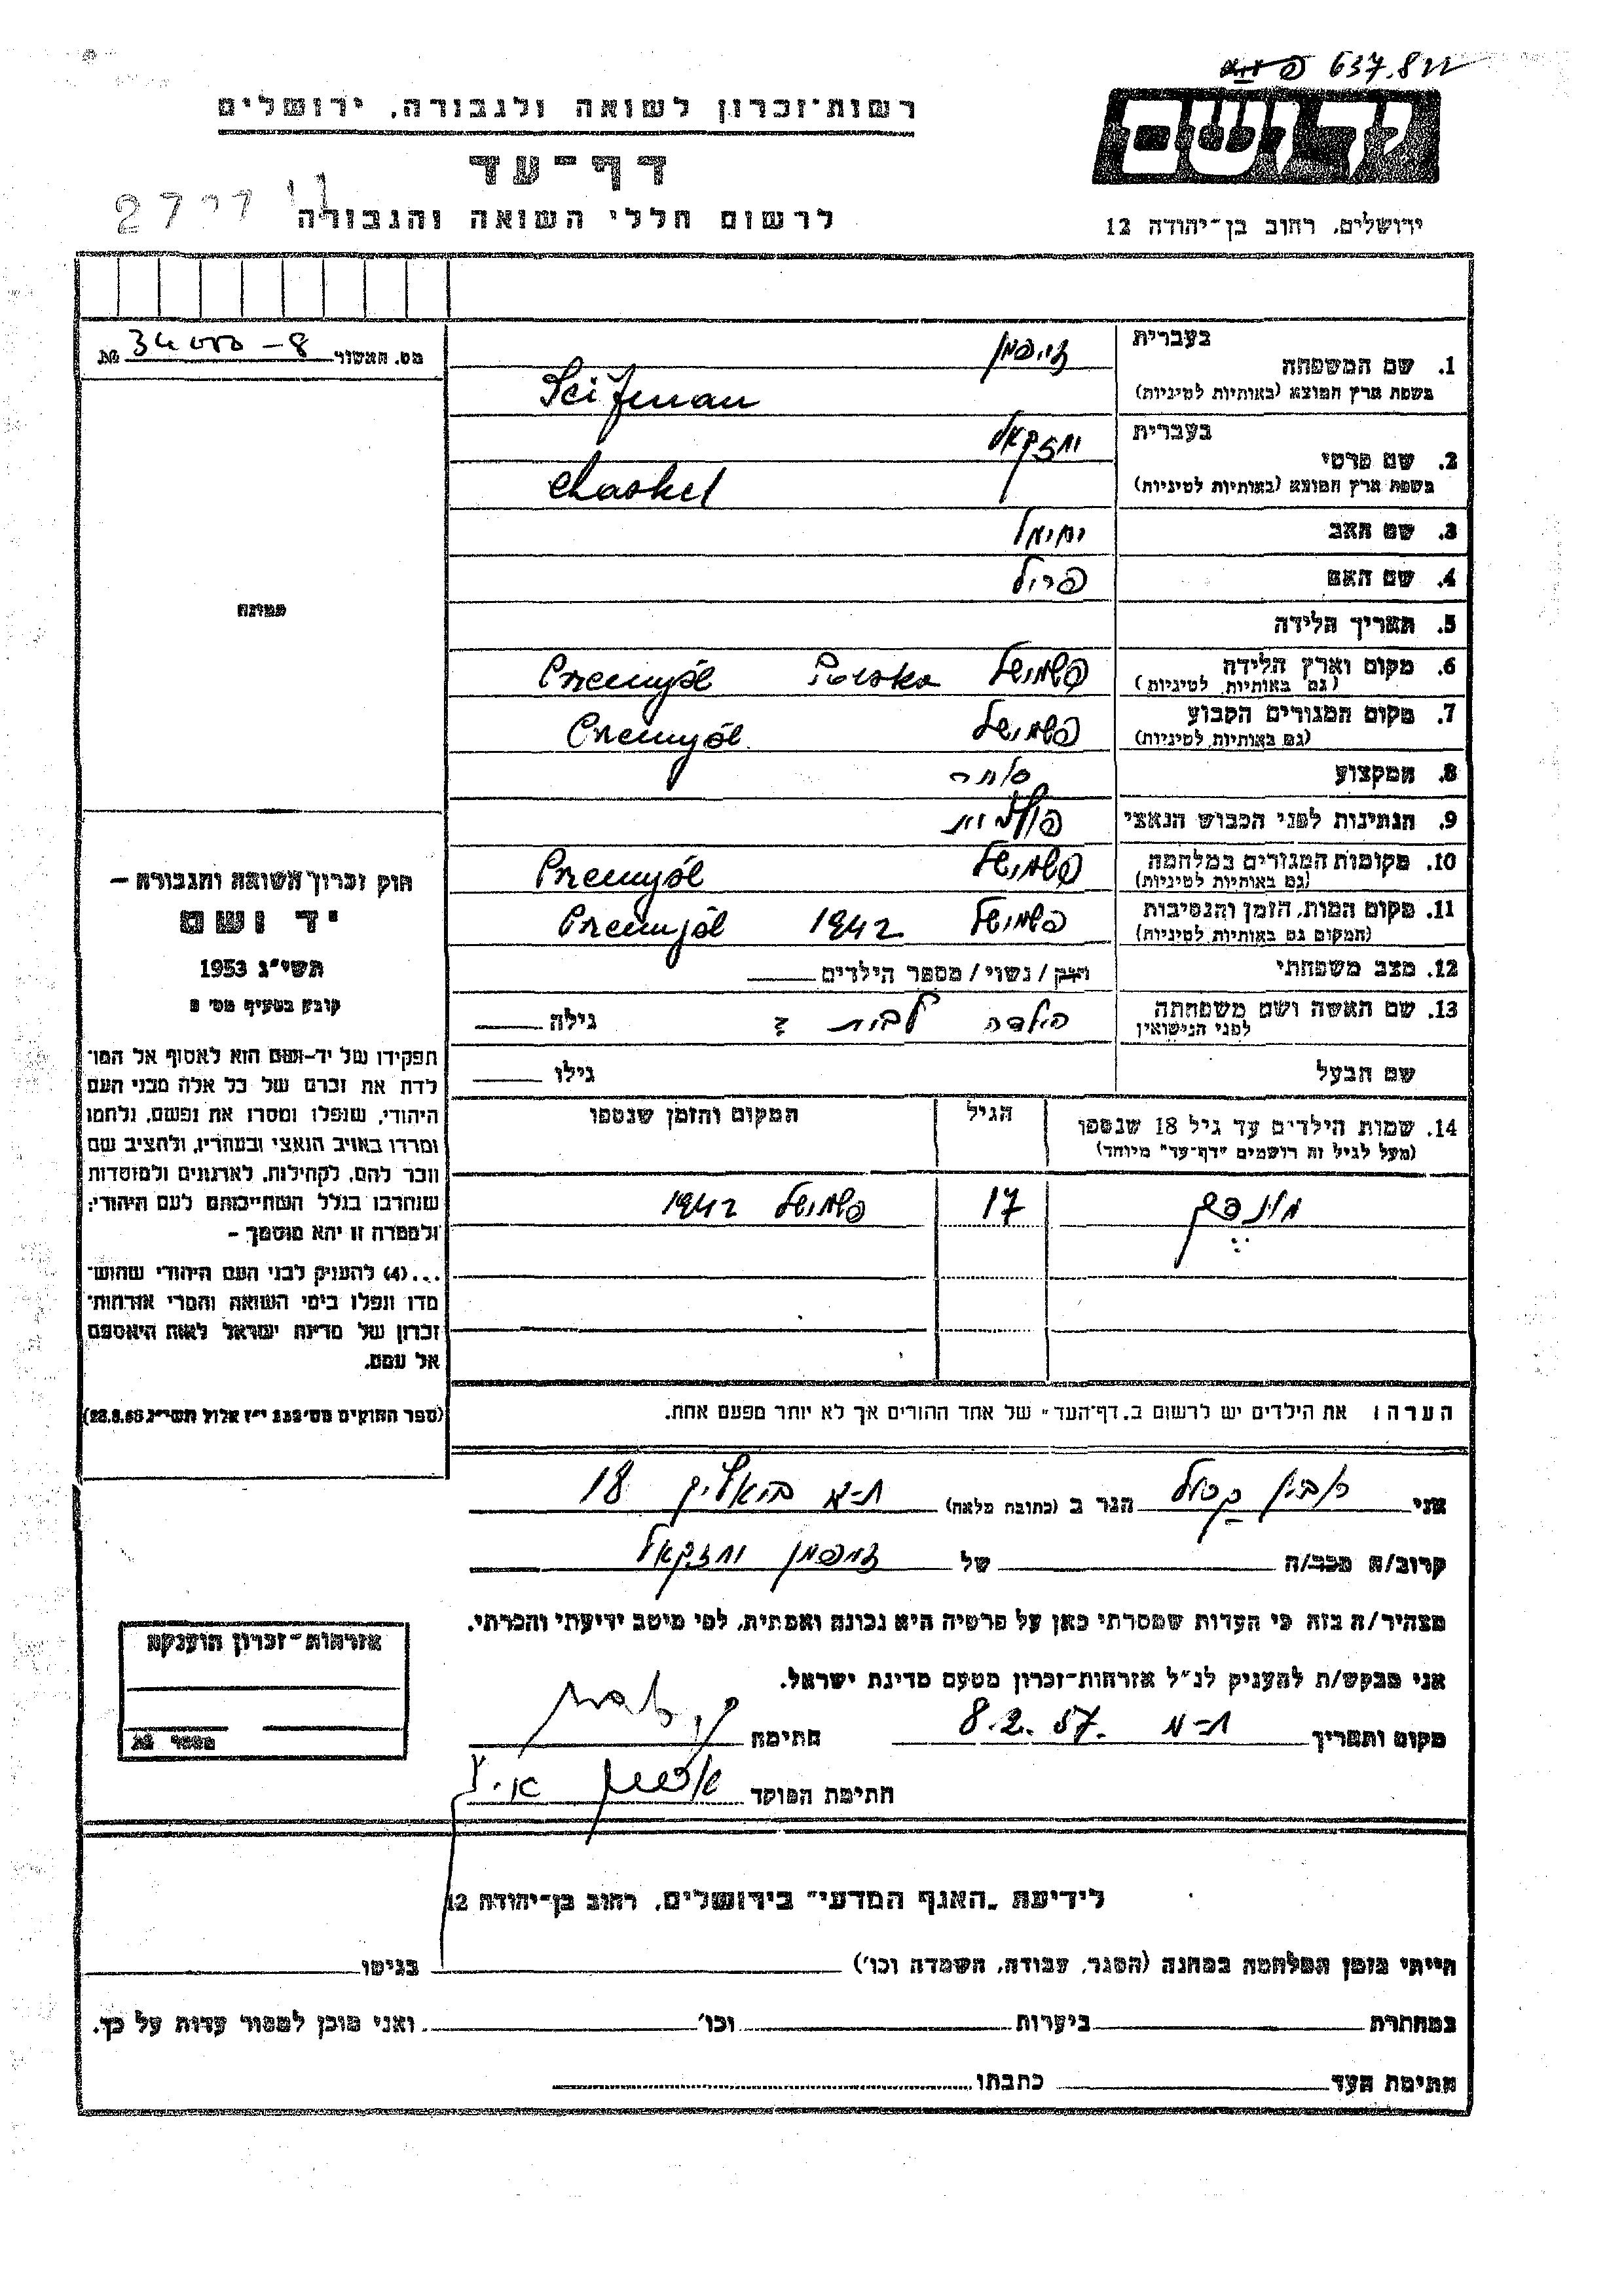 637.8
ידושם
רשות־זכרון לשואה ולגבורה, ירושלים
דף־עד
לרשום חללי השואה והגבורה
ירושלים, רחוב בן־יהודה 12
מס. האשור
1. שם המשפחה
בעברית
זייפמן
בשפת ארץ המוצא (באותיות לטיניות)
Seifman
2. שם פרטי
בעברית
יחזקאל
בשפת ארץ המוצא (באותיות לטיניות)
Chaskel
3. שם האב
4. שם האם
5. תאריך הלידה
6. מקום וארץ הלידה
(גם באותיות לטיניות)
פשמישל Polska Przemyśl
7. מקום המגורים הקבוע
(גם באותיות לטיניות)
פשמישל Przemyśl
8. המקצוע
9. הנתינות לפני הכבוש הנאצי
פולנית
10. מקומות המגורים במלחמה
(גם באותיות לטיניות)
פשמישל Przemyśl
11. מקום המות, הזמן והנסיבות
(המקום גם באותיות לטיניות)
פשמישל 1942 Przemyśl
12. מצב משפחתי
רווק / נשוי / מספר הילדים
13. שם האשה ושם משפחתה
לפני הנישואין
הילדה לבית
גילה
שם הבעל
גילו
14. שמות הילדים עד גיל 18 שנספו
(מעל לגיל זה רושמים "דף־עד" מיוחד)
הגיל
המקום והזמן שנספו
17 פשמישל 1942
הערה: את הילדים יש לרשום ב„דף־העד" של אחד ההורים אך לא יותר מפעם אחת.
תמונה
חוק זכרון השואה והגבורה –
יד ושם
תשי"ג 1953
קובע בסעיף מס' 2
תפקידו של יד־ושם הוא לאסוף אל המו־
לדת את זכרם של כל אלה מבני העם
היהודי, שנפלו ומסרו את נפשם, נלחמו
ומרדו באויב הנאצי ובעוזריו, ולהציב שם
וזכר להם, לקהילות, לארגונים ולמוסדות
שנחרבו בגלל השתייכותם לעם היהודי;
ולמטרה זו יהא מוסמך –
...(4) להעניק לבני העם היהודי שהוש־
מדו ונפלו בימי השואה והמרי אזרחות־
זכרון של מדינת ישראל לאות היאספם
אל עמם.
(ספר החוקים מס' 132 י"ז אלול תשי"ג 28.8.53)
אני
הגר ב (כתובת מלאה) ת-א ביאליק 18
קרוב/ה מכר/ה
של זייפמן יחזקאל
מצהיר/ה בזה כי העדות שמסרתי כאן על פרטיה היא נכונה ואמתית, לפי מיטב ידיעתי והכרתי.
אני מבקש/ת להעניק לנ"ל אזרחות־זכרון מטעם מדינת ישראל.
מקום ותאריך ת-א 8.2.57.
חתימה
חתימת הפוקד
אזרחות־זכרון הוענקה
מספר
לידיעת „האגף המדעי" בירושלים, רחוב בן־יהודה 12
הייתי בזמן המלחמה במחנה (הסגר, עבודה, השמדה וכו')
בגיטו
במחתרת
ביערות
וכו'
ואני מוכן למסור עדות על כך.
חתימת העד
כתבתו